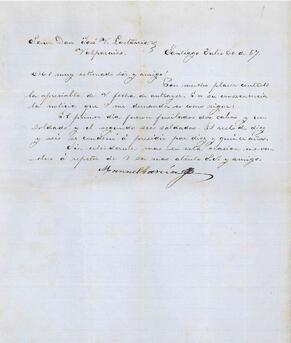 Señor Don José V. Lastarria
Valparaiso.
Santiago Julio 20 de 67.
Mi muy estimado Sor y amigo:
Con mucho placer contesto
la apreciable de V. fecha de antayer. En su consecuencia
la noticia que V. me demanda es como sigue.
El primer dia fueron fusilados dos cabos y un
soldado y el segundo seis soldados. El resto de diez
y seis á presidio por diez y quince años.
Sin estenderme mas en esta ocasion me vuelvo
á repetir de V. su mas atento S.S. y amigo.
Manuel Garcia